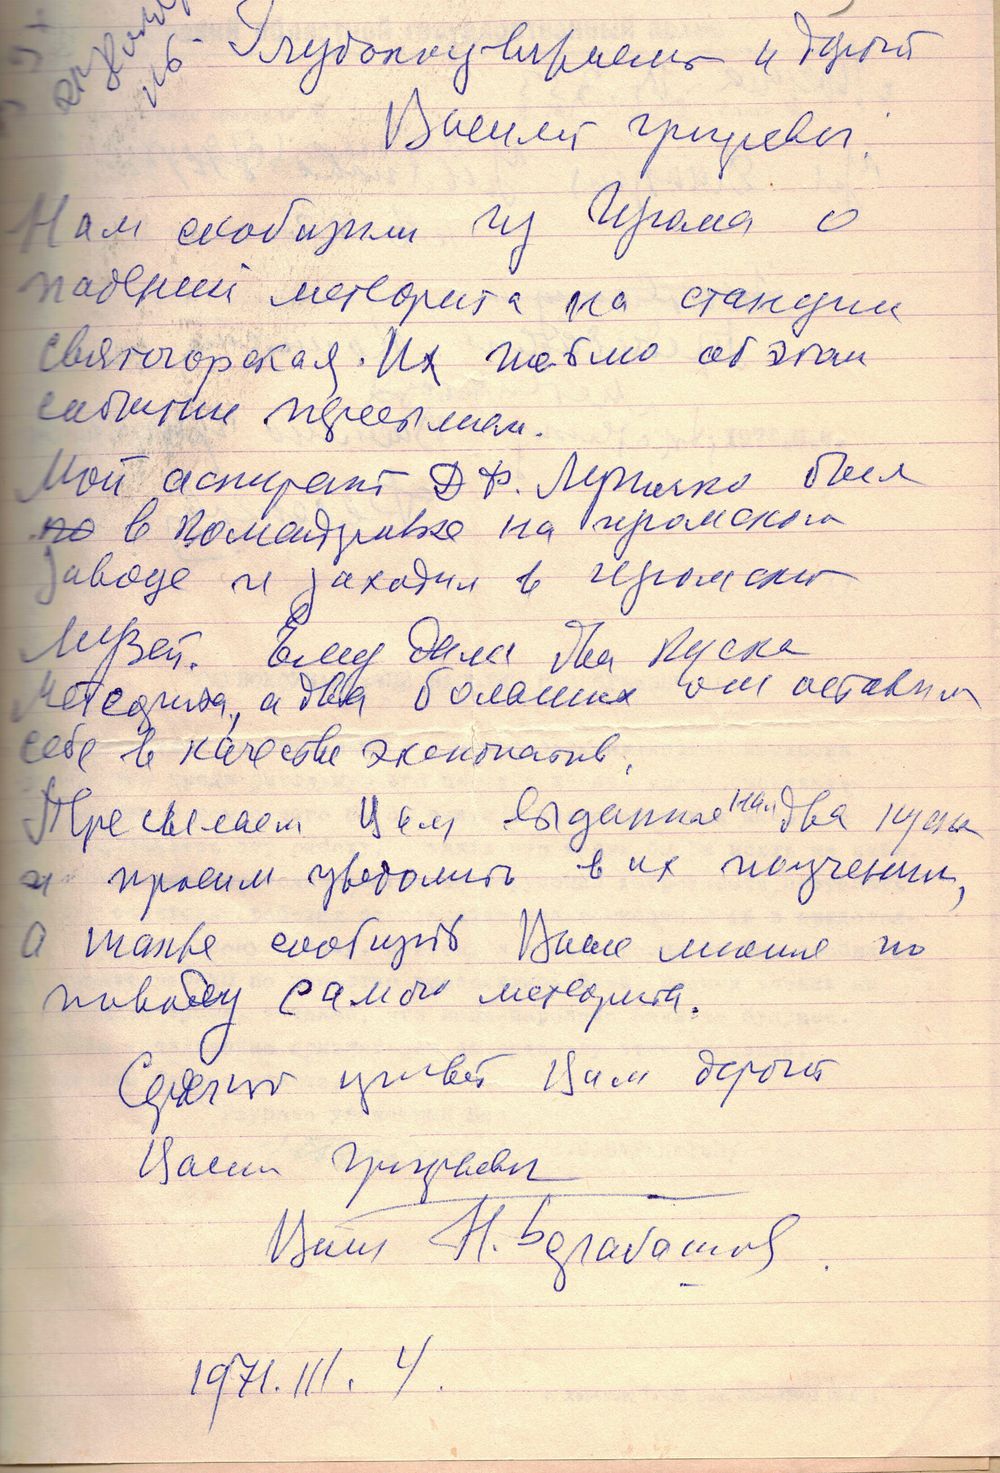 Глубокоуважаемый и дорогой
Василий Григорьевич!
Нам сообщили из Изюма о
падении метеорита на станции
Святогорская. Их письмо об этом
событии пересылаем.
Мой аспирант Д Ф. был
по в командировке на изюмском
заводе и заходил в изюмский
Музей. Ему дали два куска
Метеорита, а два больших они оставили
себе в качестве экспонатов.
Пересылаем Вам выданные нам два куска
и просим уведомить в их получении,
а также сообщить Ваше мнение по
поводу самого метеорита.
Сердечный привет Вам дорогой
Василий Григорьевич
Ваш Н.
1971.III. 4.